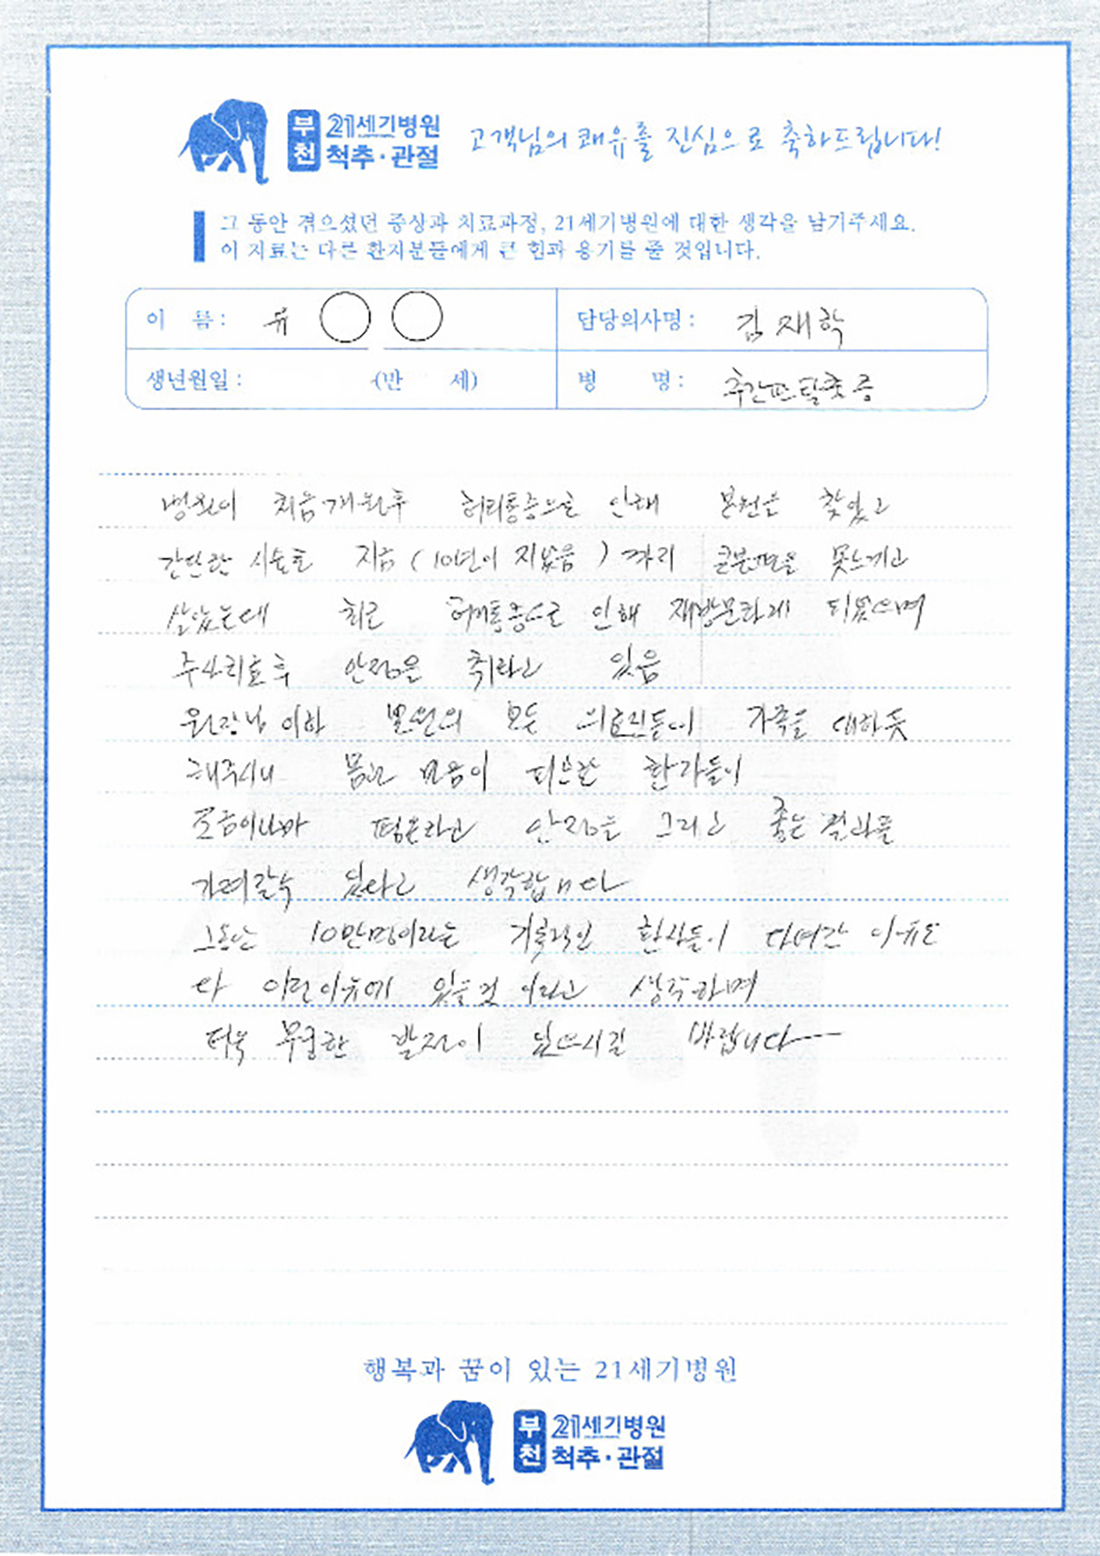 부천 21세기병원 척추·관절
고객님의 쾌유를 진심으로 축하드립니다!
그 동안 겪으셨던 증상과 치료과정, 21세기병원에 대한 생각을 남기주세요.
이 자료는 다른 환자분들에게 큰 힘과 용기를 줄 것입니다.
이 름 : 유 ○ ○ 담당의사명 : 김재학
생년월일 : (만 세) 병 명 : 추간판탈출증
병원이 처음개원후 허리통증으로 인해 본원을 찾았고
간단한 시술로 지금 (10년이 지났음) 까지 큰불편을 못느끼고
살았는데 최근 허리통증으로 인해 재방문하게 되었으며
주사치료후 안정을 취하고 있음
원장님 이하 본원의 모든 의료진들이 가족을 대하듯
해주시니 몸과 마음이 피곤한 환자들이
조금이나마 편온하고 안정을 그리고 좋은 결과를
가져갈수 있다고 생각합니다
그동안 10만명이라는 기록적인 환자들이 다녀간 이유도
다 이런이유에 있을것 이라고 생각하며
더욱 무궁한 발전이 있으시길 바랍니다
행복과 꿈이 있는 21세기병원
부천 21세기병원 척추·관절